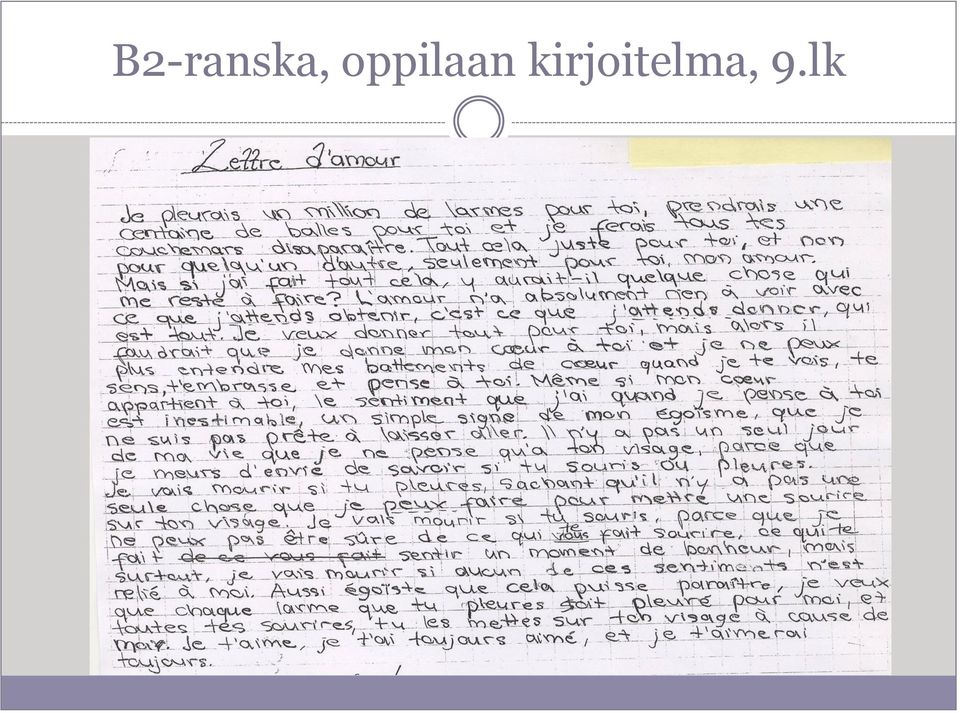 B2-ranska, oppilaan kirjoitelma, 9.lk
Lettre d'amour
Je pleurais un million de larmes pour toi, prendrais une
centaine de balles pour toi et je ferais tous tes
couchemars disaparaître. Tout cela juste pour toi, et non
pour quelqu'un d'autre, seulement pour toi, mon amour.
Mais si j'ai fait tout cela, y aurait-il quelque chose qui
me reste à faire? L'amour n'a absolument rien à voir avec
ce que j'attends obtenir, c'est ce que j'attends donner, qui
est tout. Je veux donner tout pour toi, mais alors il
faudrait que je donne mon cœur à toi et je ne peux
plus entendre mes battements de cœur quand je te vois, te
sens, t'embrasse et pense à toi. Même si mon cœur
appartient à toi, le sentiment que j'ai quand je pense à toi
est inestimable, un simple signe de mon égoïsme, que je
ne suis pas prête à laisser aller. Il n'y a pas un seul jour
de ma vie que je ne pense qu'a ton visage, parce que
je meurs d'envie de savoir si tu souris ou pleures.
Je vais mourir si tu pleures, sachant qu'il n'y a pas une
seule chose que je peux faire pour mettre une sourire
sur ton visage. Je vais mourir si tu souris, parce que je
ne peux pas être sûre de ce qui vous te fait sourire, ce qui te
fait de ce vous fait sentir un moment de bonheur, mais
surtout, je vais mourir si aucun de ces sentiments n'est
relié à moi. Aussi égoïste que cela puisse paraître, je veux
que chaque larme que tu pleures soit pleuré pour moi, et
toutes tes sourires, tu les mettes sur ton visage à cause de
moi. Je t'aime, je t'ai toujours aimé, et je t'aimerai
toujours.